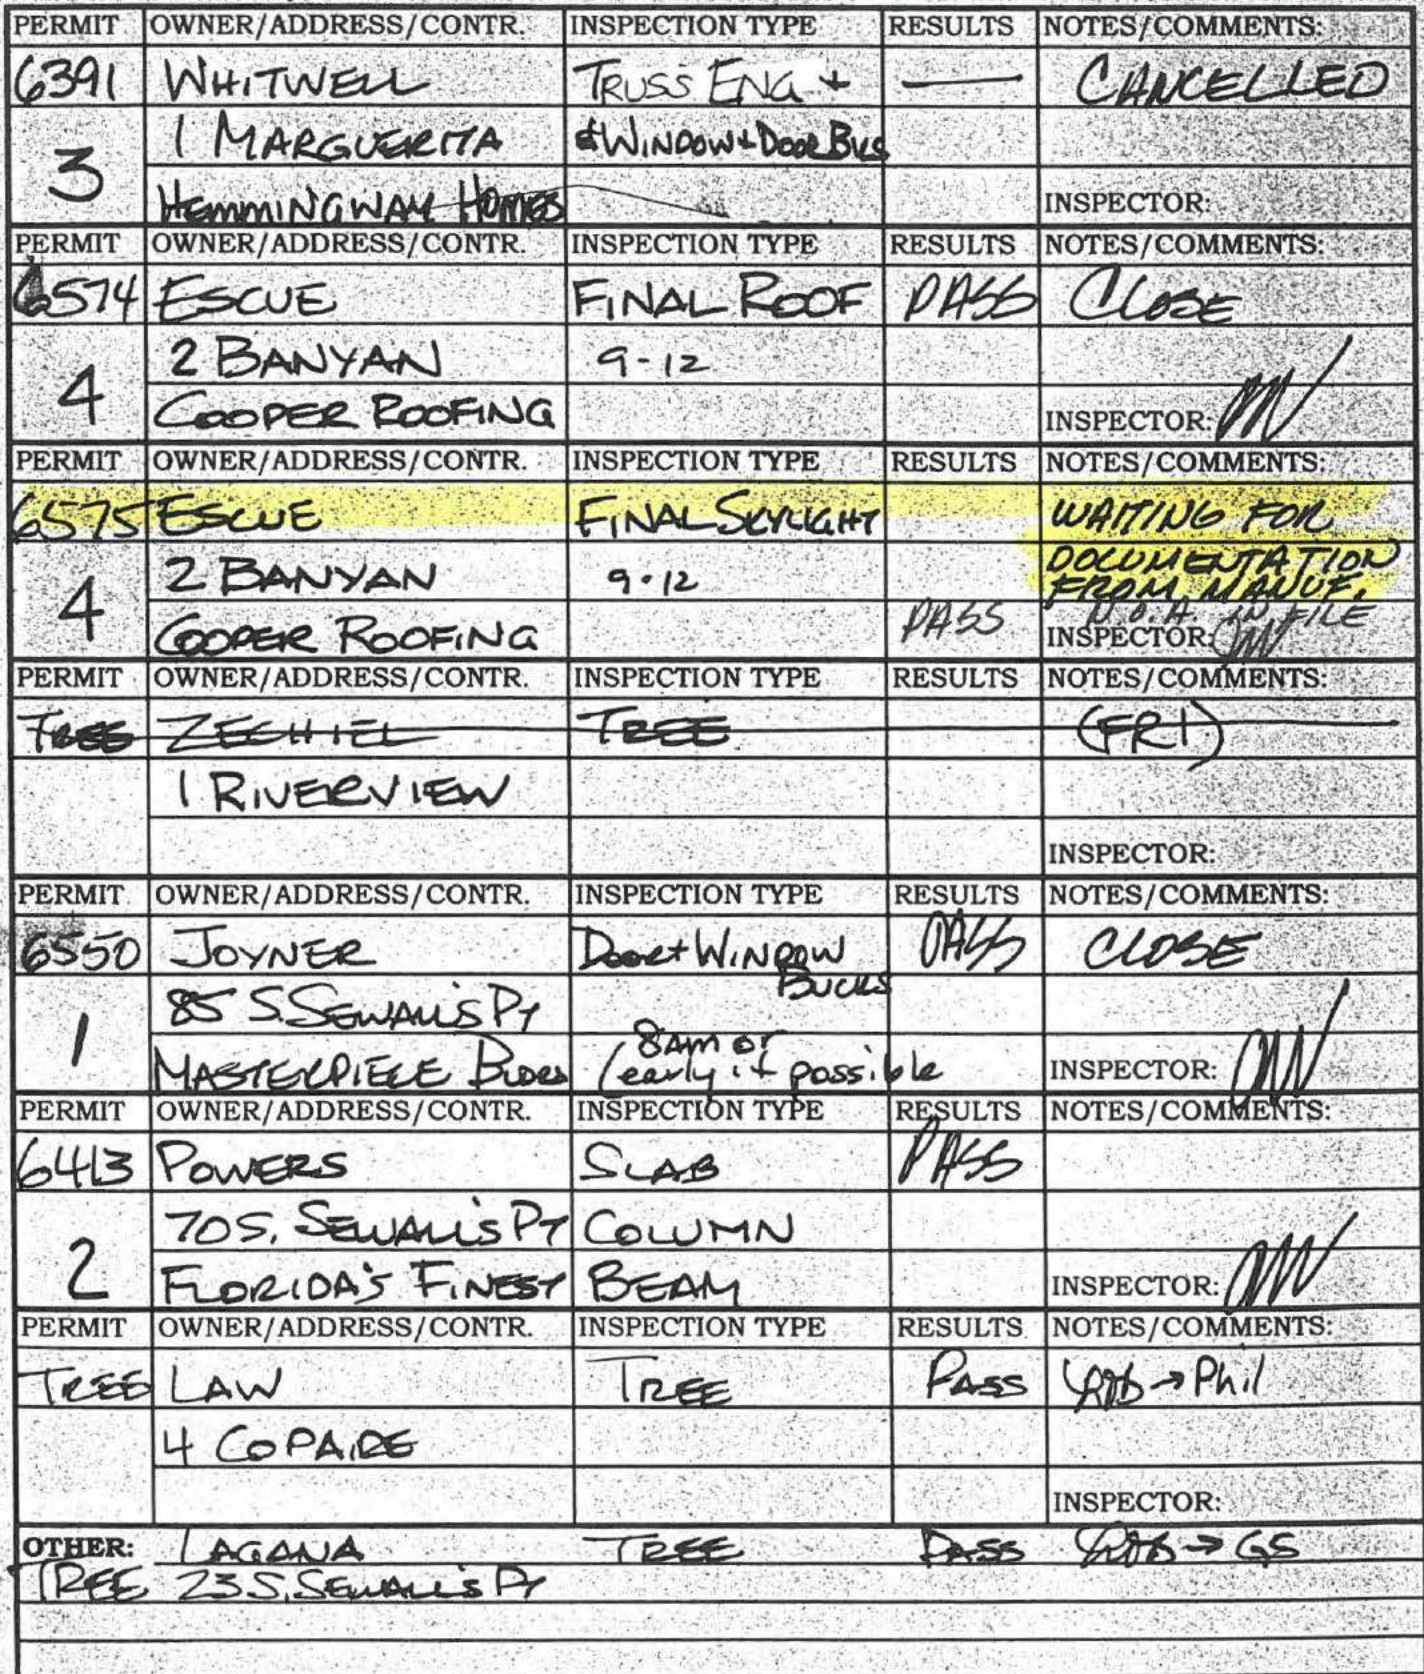 PERMIT OWNER/ADDRESS/CONTR. INSPECTION TYPE RESULTS NOTES/COMMENTS:
6391 WHITWELL TRUSS ENG + — CANCELLED
3 1 MARGUERITA & WINDOW + DOOR BUCKS
HEMMINGWAY HOMES INSPECTOR:
PERMIT OWNER/ADDRESS/CONTR. INSPECTION TYPE RESULTS NOTES/COMMENTS:
6574 ESCUE FINAL ROOF PASS CLOSE
4 2 BANYAN 9-12
COOPER ROOFING INSPECTOR:
PERMIT OWNER/ADDRESS/CONTR. INSPECTION TYPE RESULTS NOTES/COMMENTS:
6575 ESCUE FINAL SKYLIGHT WAITING FOR
4 2 BANYAN 9-12 DOCUMENTATION
FROM MANUF.
COOPER ROOFING PASS N.O.A. IN FILE
INSPECTOR:
PERMIT OWNER/ADDRESS/CONTR. INSPECTION TYPE RESULTS NOTES/COMMENTS:
TREE ZECHIEL TREE (FRI)
1 RIVERVIEW
INSPECTOR:
PERMIT OWNER/ADDRESS/CONTR. INSPECTION TYPE RESULTS NOTES/COMMENTS:
6550 JOYNER DOOR + WINDOW PASS CLOSE
BUCKS
1 85 S. SEWALL'S PT
MASTERPIECE BLDRS (8am or early if possible INSPECTOR:
PERMIT OWNER/ADDRESS/CONTR. INSPECTION TYPE RESULTS NOTES/COMMENTS:
6413 POWERS SLAB PASS
2 70 S. SEWALL'S PT COLUMN
FLORIDA'S FINEST BEAM INSPECTOR:
PERMIT OWNER/ADDRESS/CONTR. INSPECTION TYPE RESULTS NOTES/COMMENTS:
TREE LAW TREE PASS → Phil
4 COPAIRE
INSPECTOR:
OTHER: LAGANA TREE PASS → GS
TREE 23 S. SEWALL'S PT